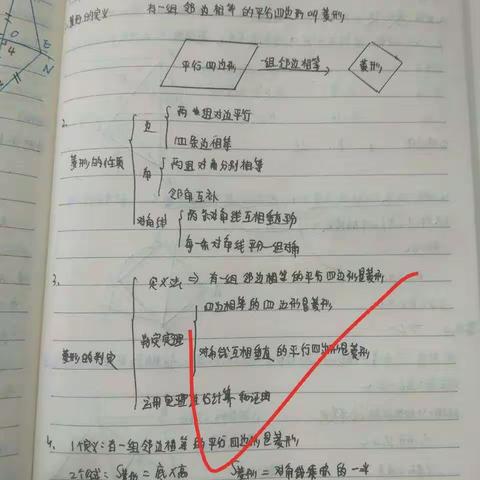 菱形的定义 有一组邻边相等的平行四边形叫菱形
平行四边形 一组邻边相等 菱形
2.
菱形的性质
边
两组对边平行
四条边相等
角
两组对角分别相等
邻角互补
对角线
两条对角线互相垂直平分
每一条对角线平分一组对角
3.
菱形的判定
定义法 ⇒ 有一组邻边相等的平行四边形是菱形
判定定理
四边相等的四边形是菱形
对角线互相垂直的平行四边形是菱形
运用定理进行计算和证明
4. 1个定义:有一组邻边相等的平行四边形是菱形
2个公式: S菱形 = 底×高 S菱形 = 对角线乘积的一半
O
E
4
N